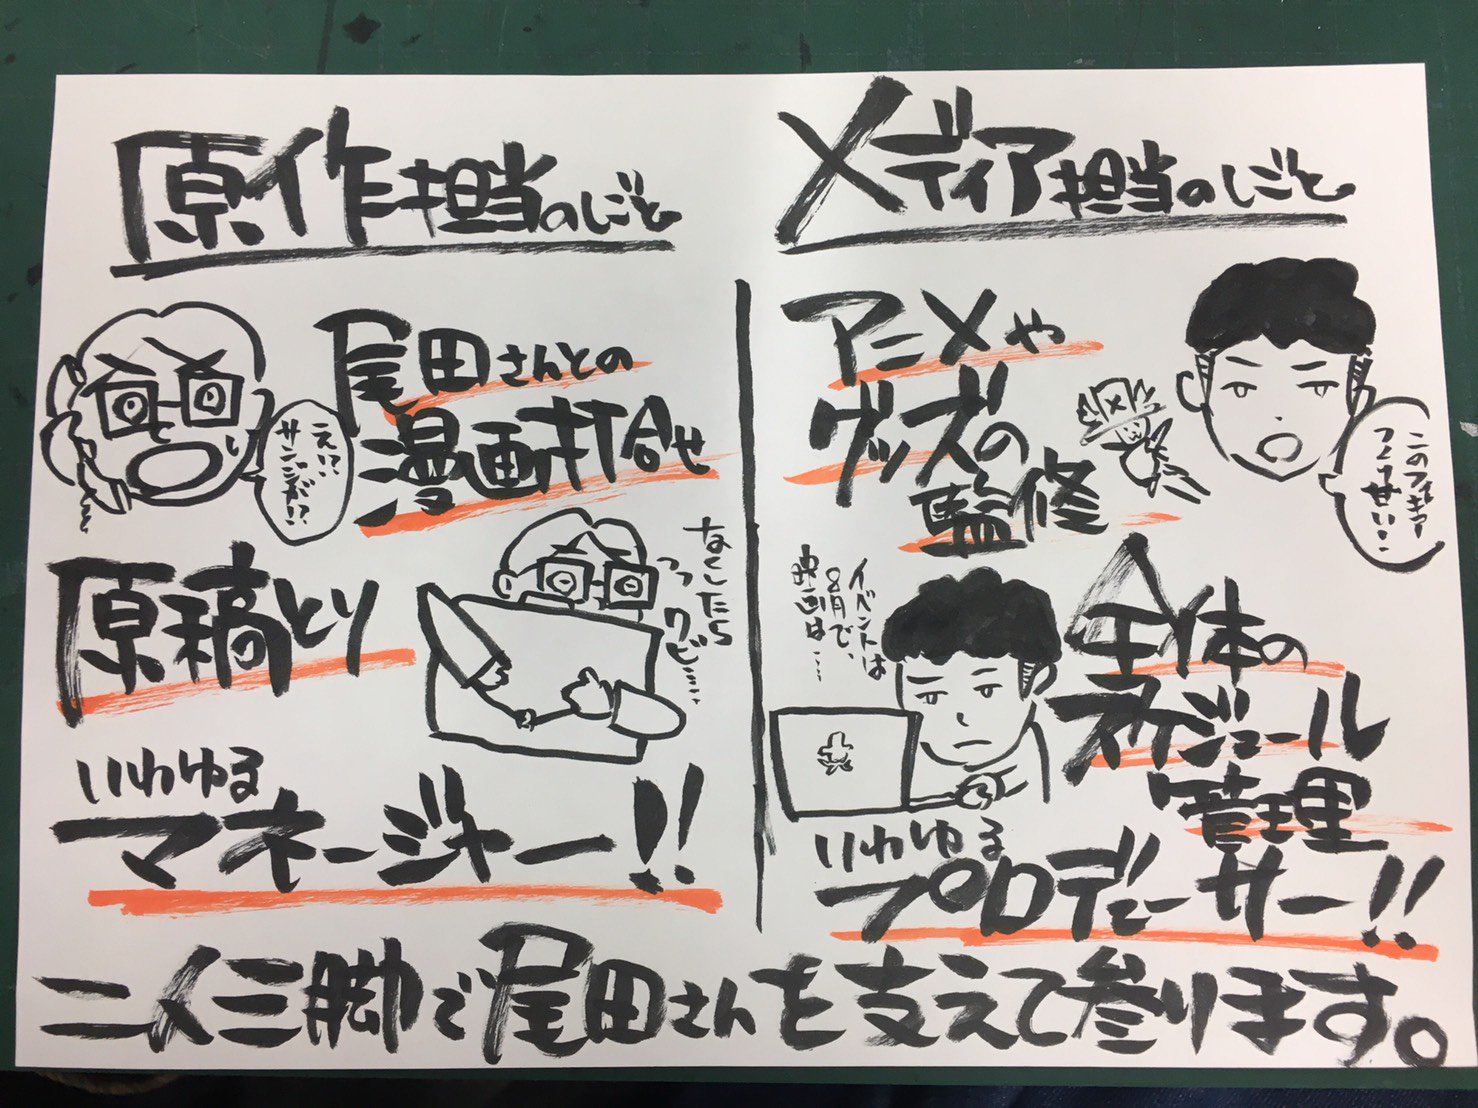 原作担当のしごと
尾田さんとの
漫画打合せ
えぃ!?
サンジが!?
原稿とり
なくしたら
クビ……
いわゆる
マネージャー!!
メディア担当のしごと
アニメや
グッズの
監修
このフィギュア
イベントは
8月で、
映画は……
全体の
スケジュール
管理
いわゆる
プロデューサー!!
二人三脚で尾田さんを支えて参ります。